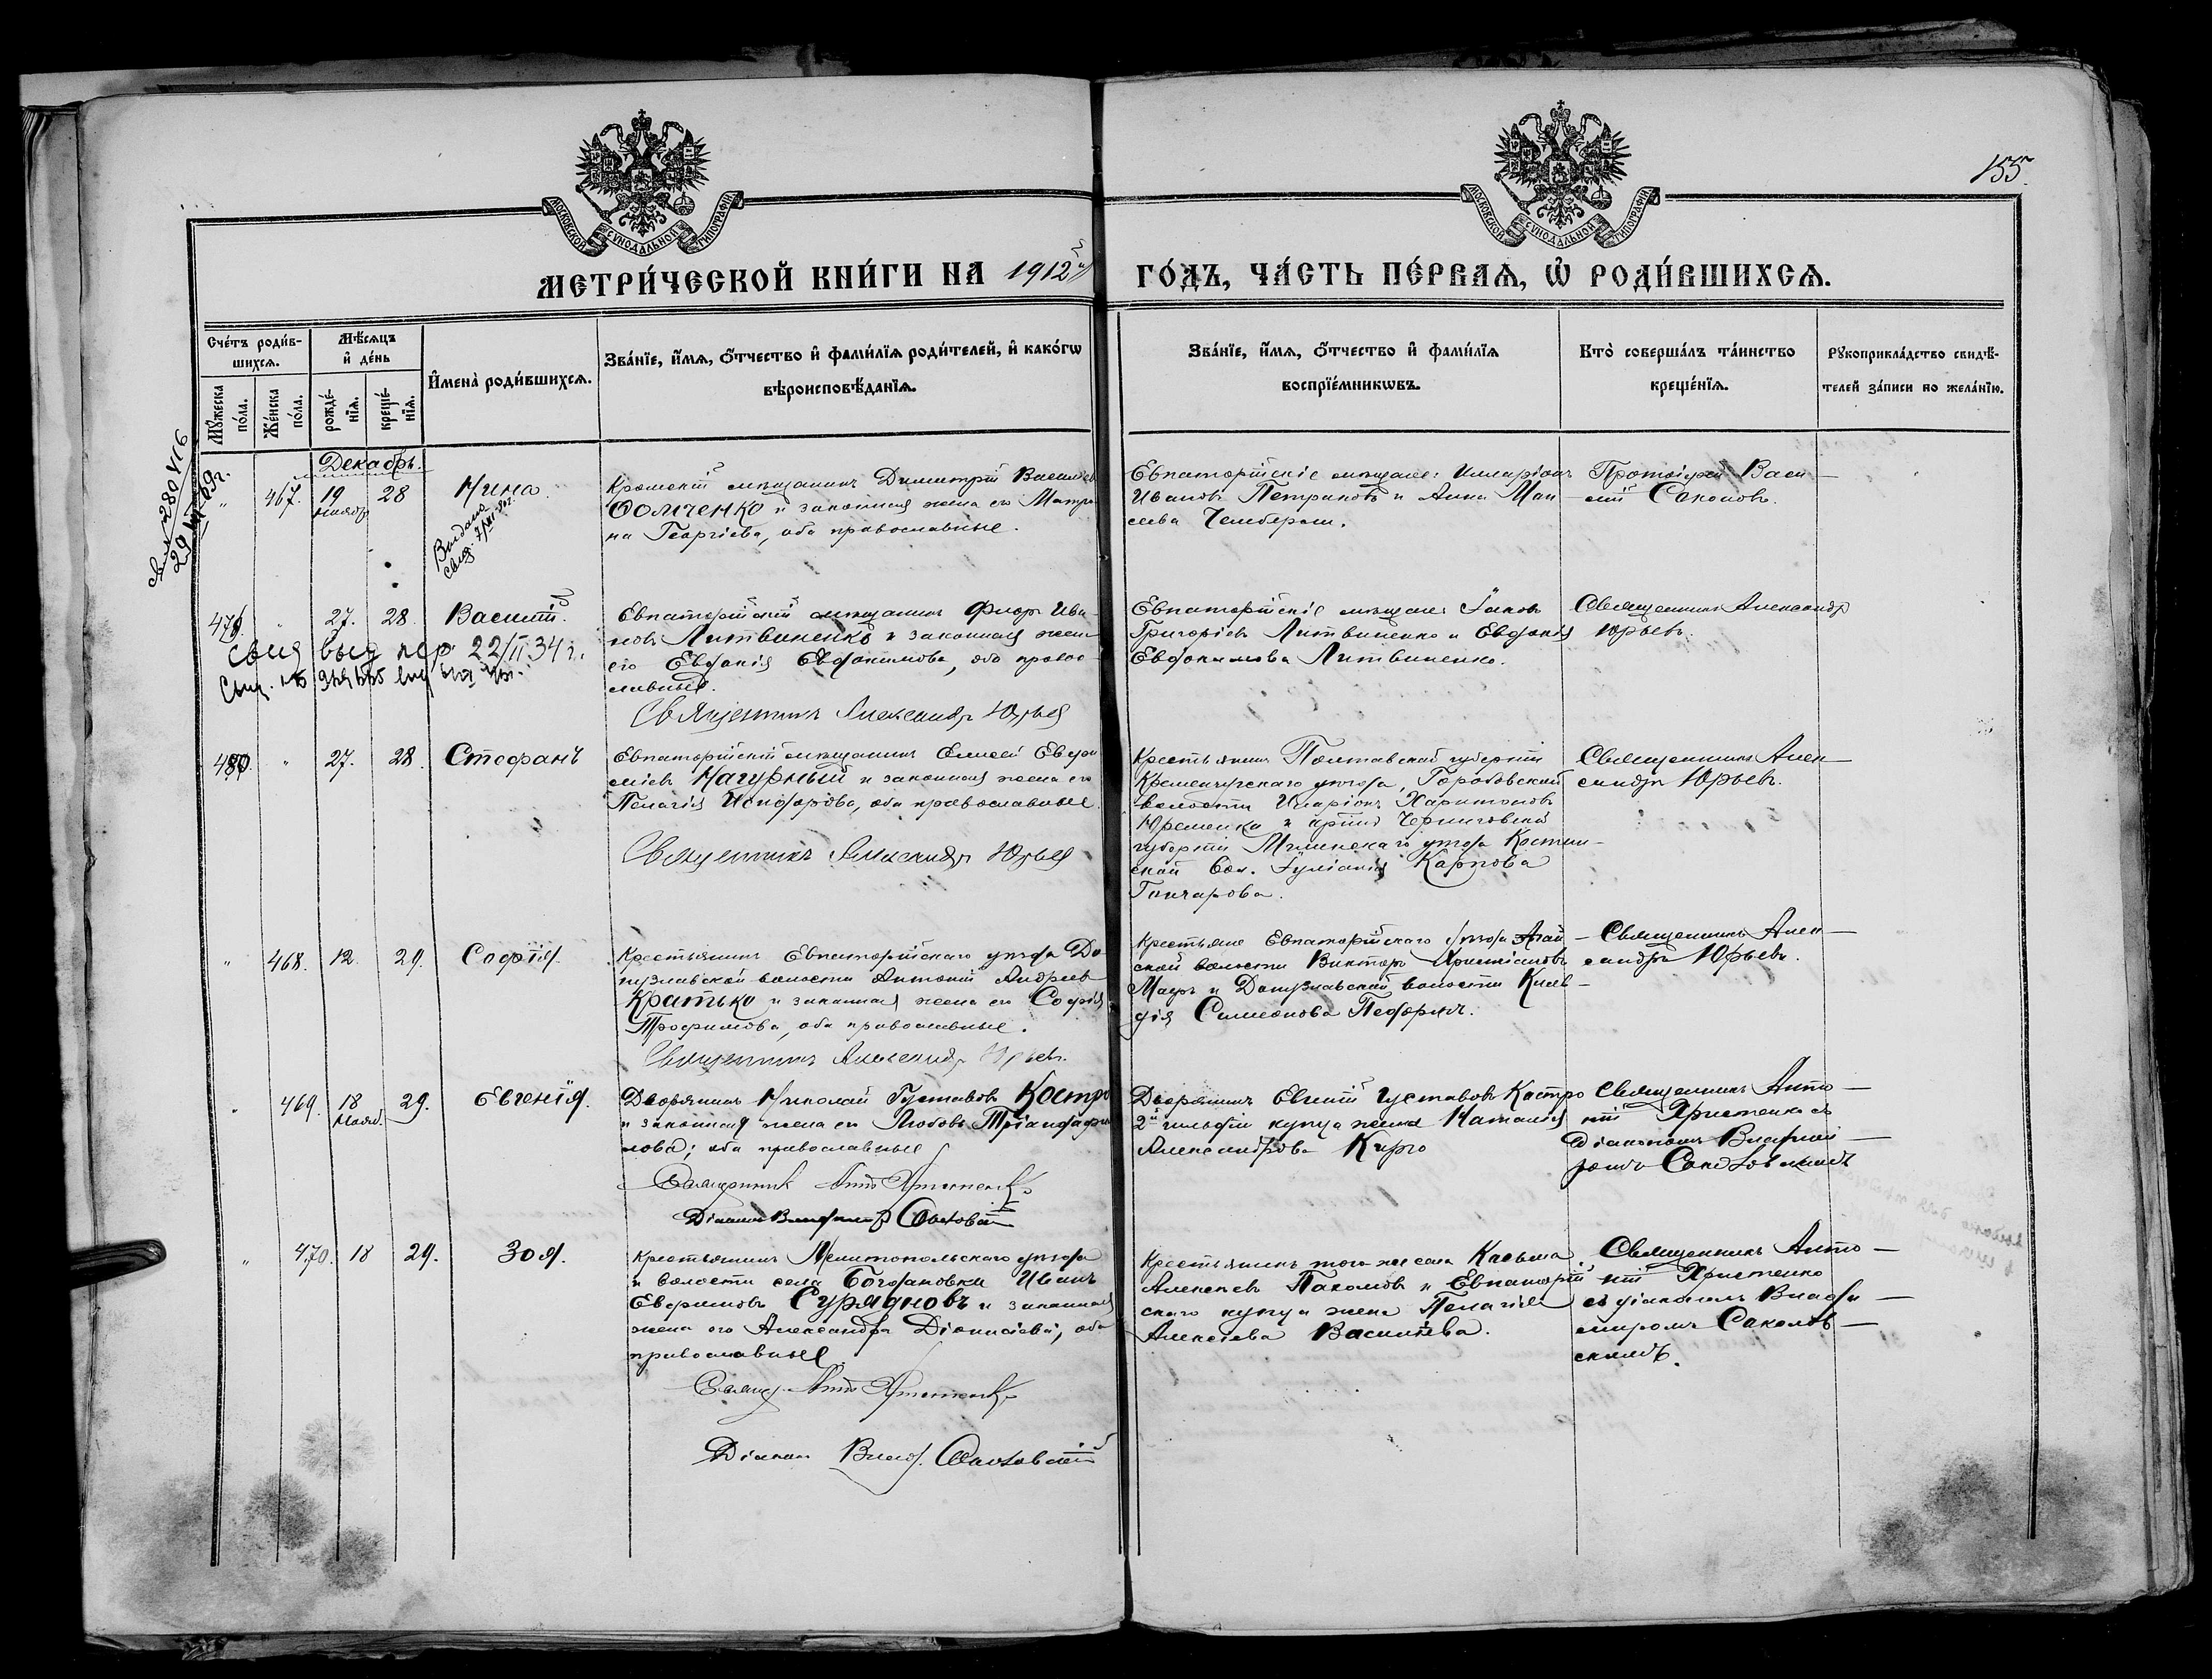 155.
МОСКОВСКОЙ СѴНОДАЛЬНОЙ ТИПОГРАФІИ
МОСКОВСКОЙ СѴНОДАЛЬНОЙ ТИПОГРАФІИ
МЕТРИ́ЧЕСКОЙ КНИ́ГИ НА 1912й ГО́ДЪ, ЧА́СТЬ ПЕ́РВАѦ, Ѡ҆ РОДИ́ВШИХСѦ.
Сче́тъ роди́в-
шихсѧ.
Мѣ́сѧцъ
и҆ де́нь
Мꙋ́жеска
по́ла.
Же́нска
по́ла.
рожде́-
нїѧ.
креще́-
нїѧ.
И҆мена̀ роди́вшихсѧ.
Зва́нїе, и҆́мѧ, ѻ҆́тчество и҆ фами́лїѧ роди́телей, и҆ како́гѡ
вѣроисповѣ́данїѧ.
Зва́нїе, и҆́мѧ, ѻ҆́тчество и҆ фами́лїѧ
воспрїе́мникѡвъ.
Кто̀ соверша́лъ та́инство
креще́нїѧ.
Рꙋкоприкла́дство свидѣ́-
телей за́писи по жела́нїю.
Декабрь.
" 467. 19 28 Нина.
Ноябр.
Выдана
свид.
Димитрій Васильев
Фомченко и законная жена его Матро
на Георгіева, оба православные.
Евпаторійскіе мѣщане: Илларіонъ
Иванов Петриковъ и Анна Мои
сеева
Протоіерей Васи
лій Соколовъ.
479. " 27. 28. Василій.
свид выд пер 22/II 34 г.
Евпаторійскій мѣщанинъ Фиор Ива-
новъ Литвиненко и законная жена
его Евдокія Евдокимова, оба право-
славные.
Священникъ Александр Юрьев
Евпаторійскіе мѣщане Іаков
Григоріев Литвиненко и Евдокія
Евдокимова Литвиненко.
Священникъ Александр
Юрьевъ.
480. " 27. 28. Стефанъ
Евпаторійскій мѣщанинъ Елисей Евфи
міевъ Нагурный и законная жена его
Пелагія Исидорова, оба православные.
Священникъ Александр Юрьев
Крестьянин Полтавской губерніи
Кременчугскаго уѣзда,
волости Иларіонъ Харитоновъ
Юременко и Черниговской
губерніи уѣзда
ской вол. Іуліанія Карпова
Гончарова.
Священникъ Алек-
сандр Юрьевъ.
" 468. 12. 29. Софія.
Крестьянинъ Евпаторійскаго уѣзда До-
нузлавской волости Антоній Андреев
Кратько и законная жена его Софія
Трофимова, оба православные.
Священникъ Александр Юрьев.
Крестьяне Евпаторійскаго уѣзда Агай-
ской волости Виктор Христіановъ
Маур и Донузлавской волости Клав-
дія Симеонова
Священникъ Алек-
сандр Юрьевъ.
" 469. 18 29. Евгенія.
Нояб.
Дворянинъ Николай Густавов Кастро
и законная жена его Любовь Тріандафи
лова; оба православные
Священник Антоній Христенко
Діаконъ Владимір Соколовскій
Дворянинъ Евгеній Густавовъ Кастро
2й гильдіи купца жена Наталія
Александрова Кирго
Священникъ Анто-
ній Христенко съ
діаконом Влади-
міромъ Соколовскимъ
" 470. 18 29. Зоя.
Крестьянинъ Мелитопольскаго уѣзда
и волости села Богдановки Иванъ
Евфимовъ Суряднов и законная
жена его Александра Діонисіева, оба
православные
Свящ. Антоній Христенко
Діакон Влад. Соколовскій
Крестьянинъ того же села Косьма
Алексѣевъ Пахомовъ и Евпаторій
скаго купца жена Пелагія
Алексѣева Васильева.
Священникъ Анто-
ній Христенко
съ діакономъ Влади-
міромъ Соколов-
скимъ.